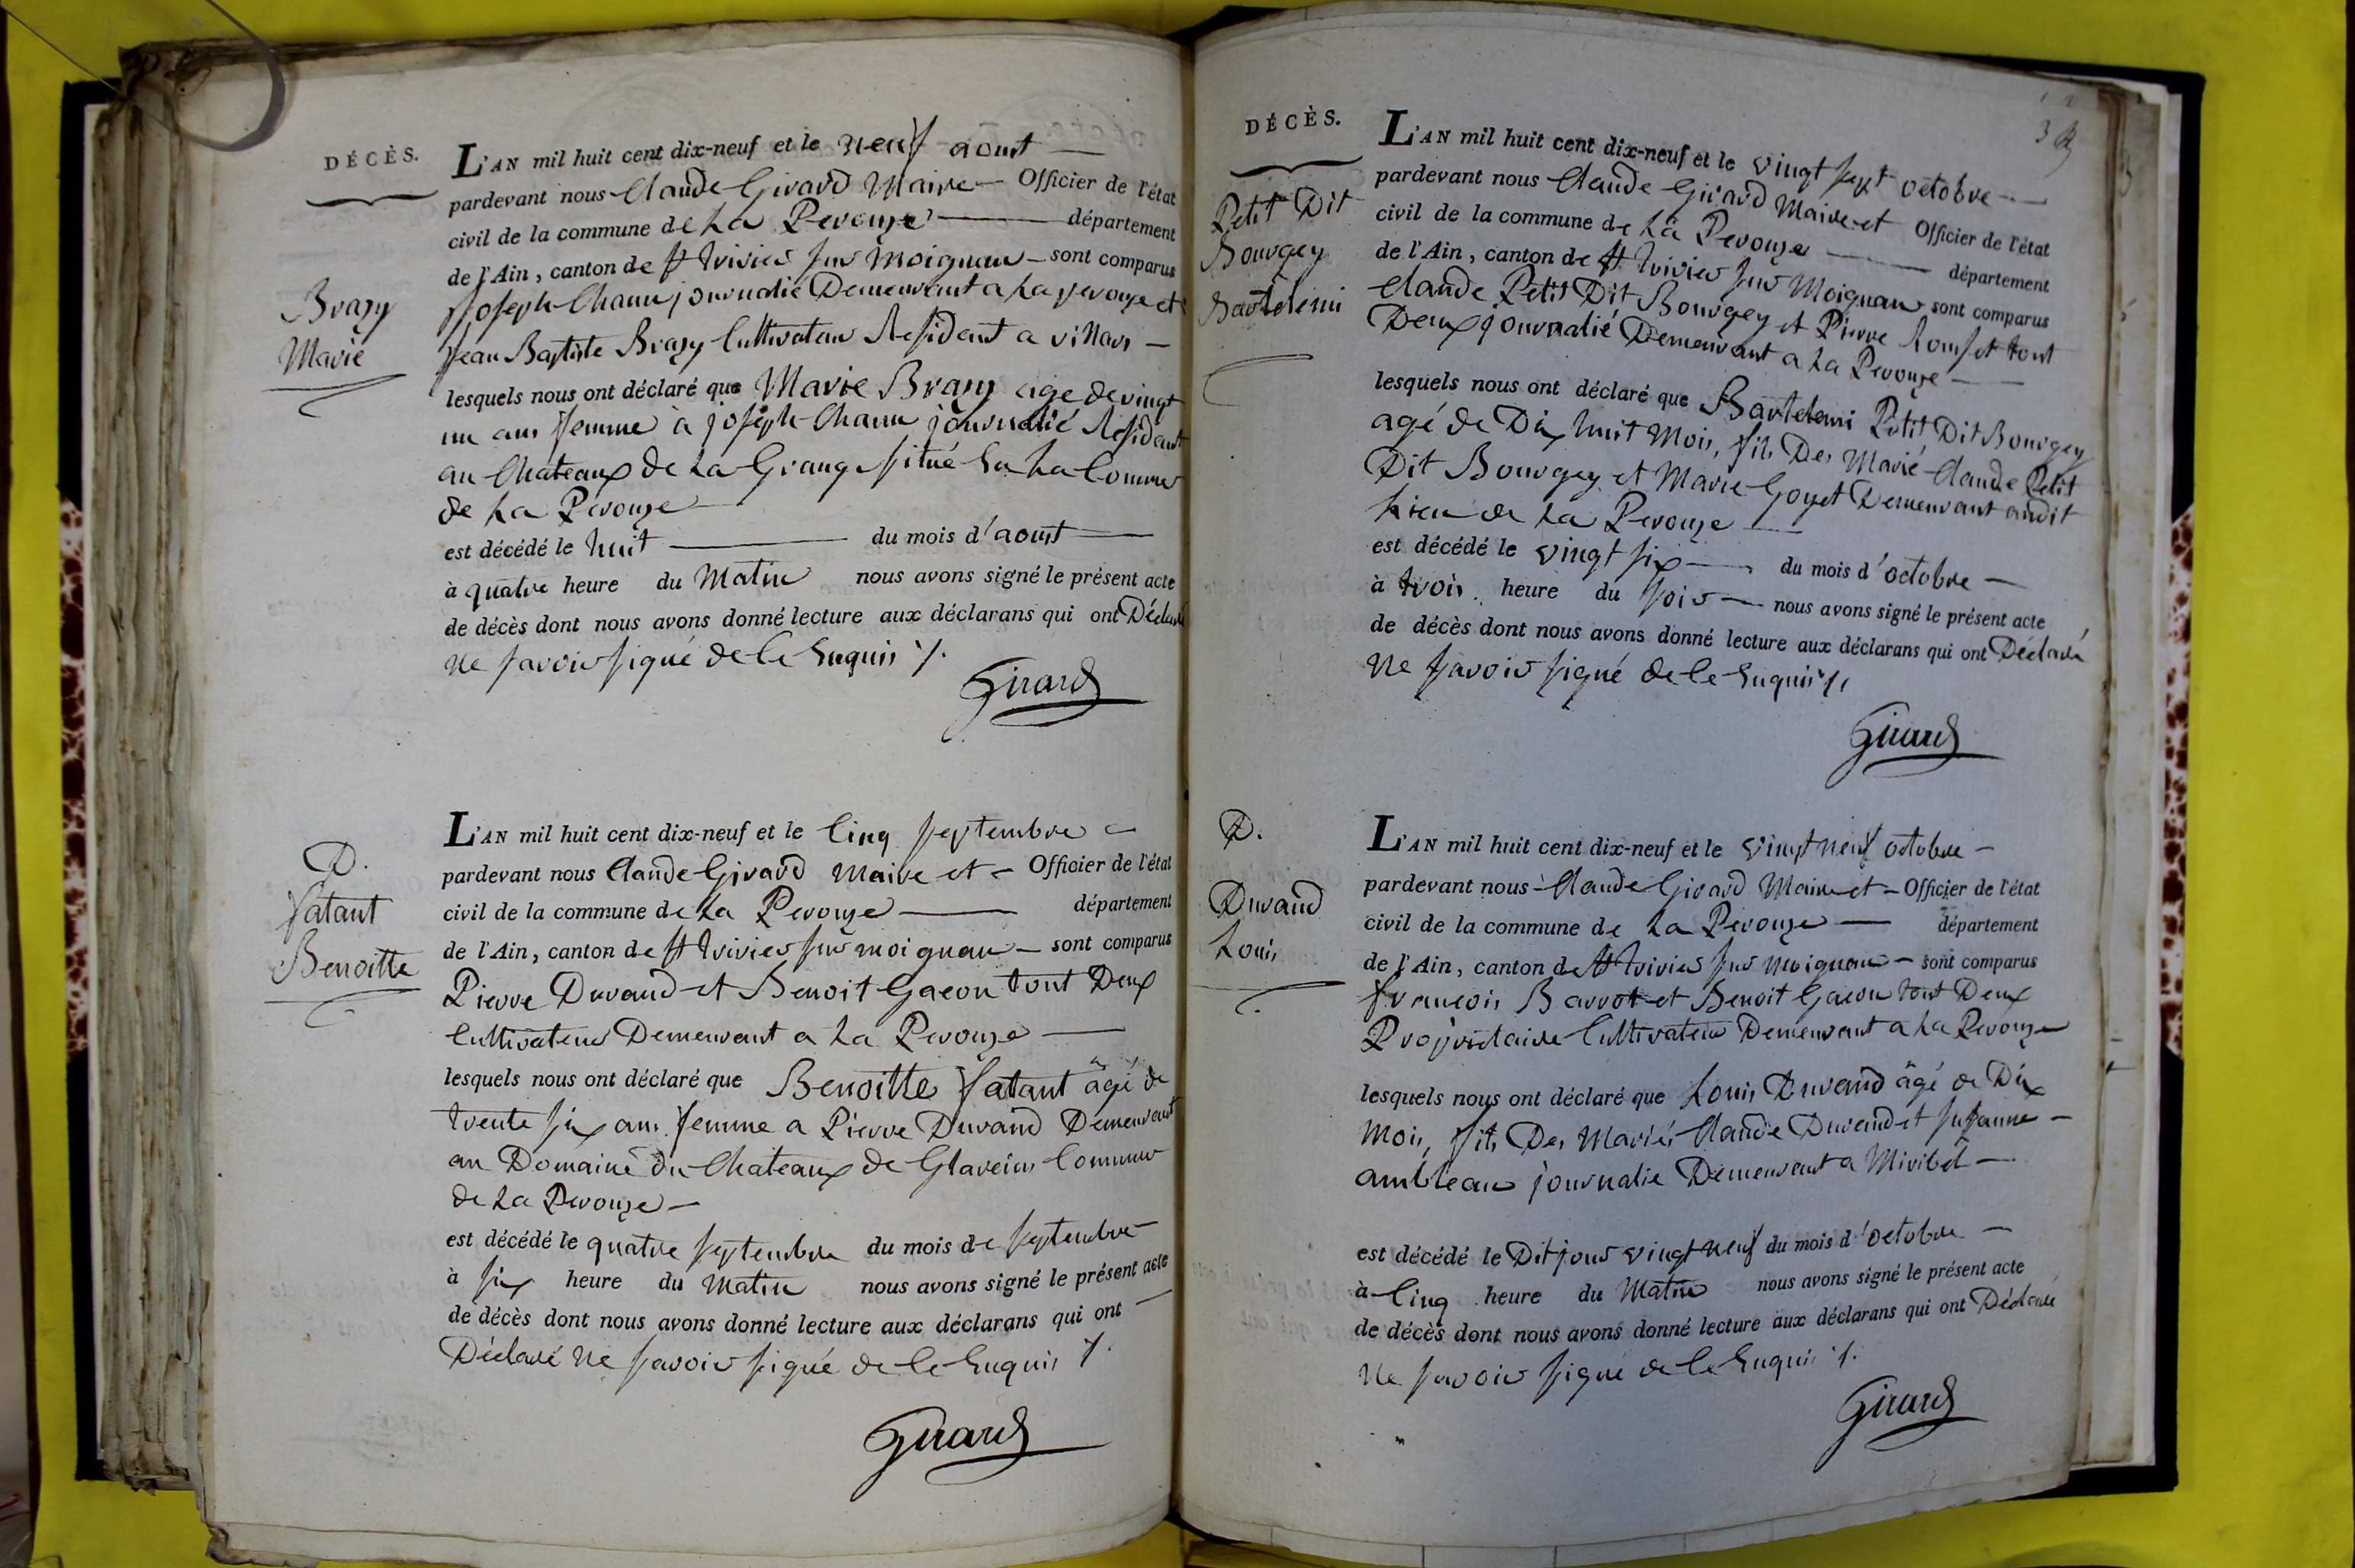 DÉCÈS.
Brazy
Marie
L'AN mil huit cent dix-neuf et le neuf aout
pardevant nous Claude Girard Maire Officier de l'état
civil de la commune de La Perouze département
de l'Ain, canton de St trivier sur moignan sont comparus
joseph Chanu journalié Demeurant a La perouze et
jean Baptiste Brazy Cultivateur Résidant a villars
lesquels nous ont déclaré que Marie Brazy age de vingt
un ans femme à joseph Chanu journalié Résidant
au Chateaux de La Grange situé En La Commune
de La Perouze
est décédé le huit du mois d'aout
à quatre heure du Matin nous avons signé le présent acte
de décès dont nous avons donné lecture aux déclarans qui ont Déclaré
ne savoir signé de Ce Enquis ./.
Girard
D.
fatant
Benoitte
L'AN mil huit cent dix-neuf et le Cinq septembre
pardevant nous Claude Girard Maire et Officier de l'état
civil de la commune de La Perouze département
de l'Ain, canton de St trivier sur moignan sont comparus
Pierre Durand et Benoit Gacon tout Deux
Cultivateur Demeurant a La Perouze
lesquels nous ont déclaré que Benoitte fatant âgé de
trente six ans femme a Pierre Durand Demeurant
au Domaine du Chateaux de Glareins Commune
de La Perouze
est décédé le quatre septembre du mois de septembre
à six heure du Matin nous avons signé le présent acte
de décès dont nous avons donné lecture aux déclarans qui ont
Déclaré ne savoir signé de Ce Enquis ./.
Girard
DÉCÈS.
Petit Dit
Bourgey
Bartelemi
L'AN mil huit cent dix-neuf et le vingt sept octobre
pardevant nous Claude Girard Maire et Officier de l'état
civil de la commune de La Perouze département
de l'Ain, canton de St trivier sur Moignan sont comparus
Claude Petit Dit Bourgey et Pierre tout
Deux journalié Demeurant a La Perouze
lesquels nous ont déclaré que Bartelemi Petit Dit Bourgey
agé de Dix huit Mois, fils Des Marié Claude Petit
Dit Bourgey et Marie Goyet Demeurant audit
Lieu de La Perouze
est décédé le vingt six du mois d'octobre
à trois heure du soir nous avons signé le présent acte
de décès dont nous avons donné lecture aux déclarans qui ont Déclaré
ne savoir signé de Ce Enquis ./.
Girard
D.
Durand
Louis
L'AN mil huit cent dix-neuf et le vingt neuf octobre
pardevant nous Claude Girard Maire et Officier de l'état
civil de la commune de La Perouze département
de l'Ain, canton de St trivier sur Moignan sont comparus
francois Barrot et Benoit Gacon tout Deux
Propriétaire Cultivateur Demeurant a La Perouze
lesquels nous ont déclaré que Louis Durand âgé de Dix
Mois, fils Des Mariés Claude Durand et susanne
ambleau journalie Demeurant a Miribel
est décédé le Dit jour vingt neuf du mois d'octobre
à Cinq heure du Matin nous avons signé le présent acte
de décès dont nous avons donné lecture aux déclarans qui ont Déclaré
ne savoir signé de Ce Enquis ./.
Girard